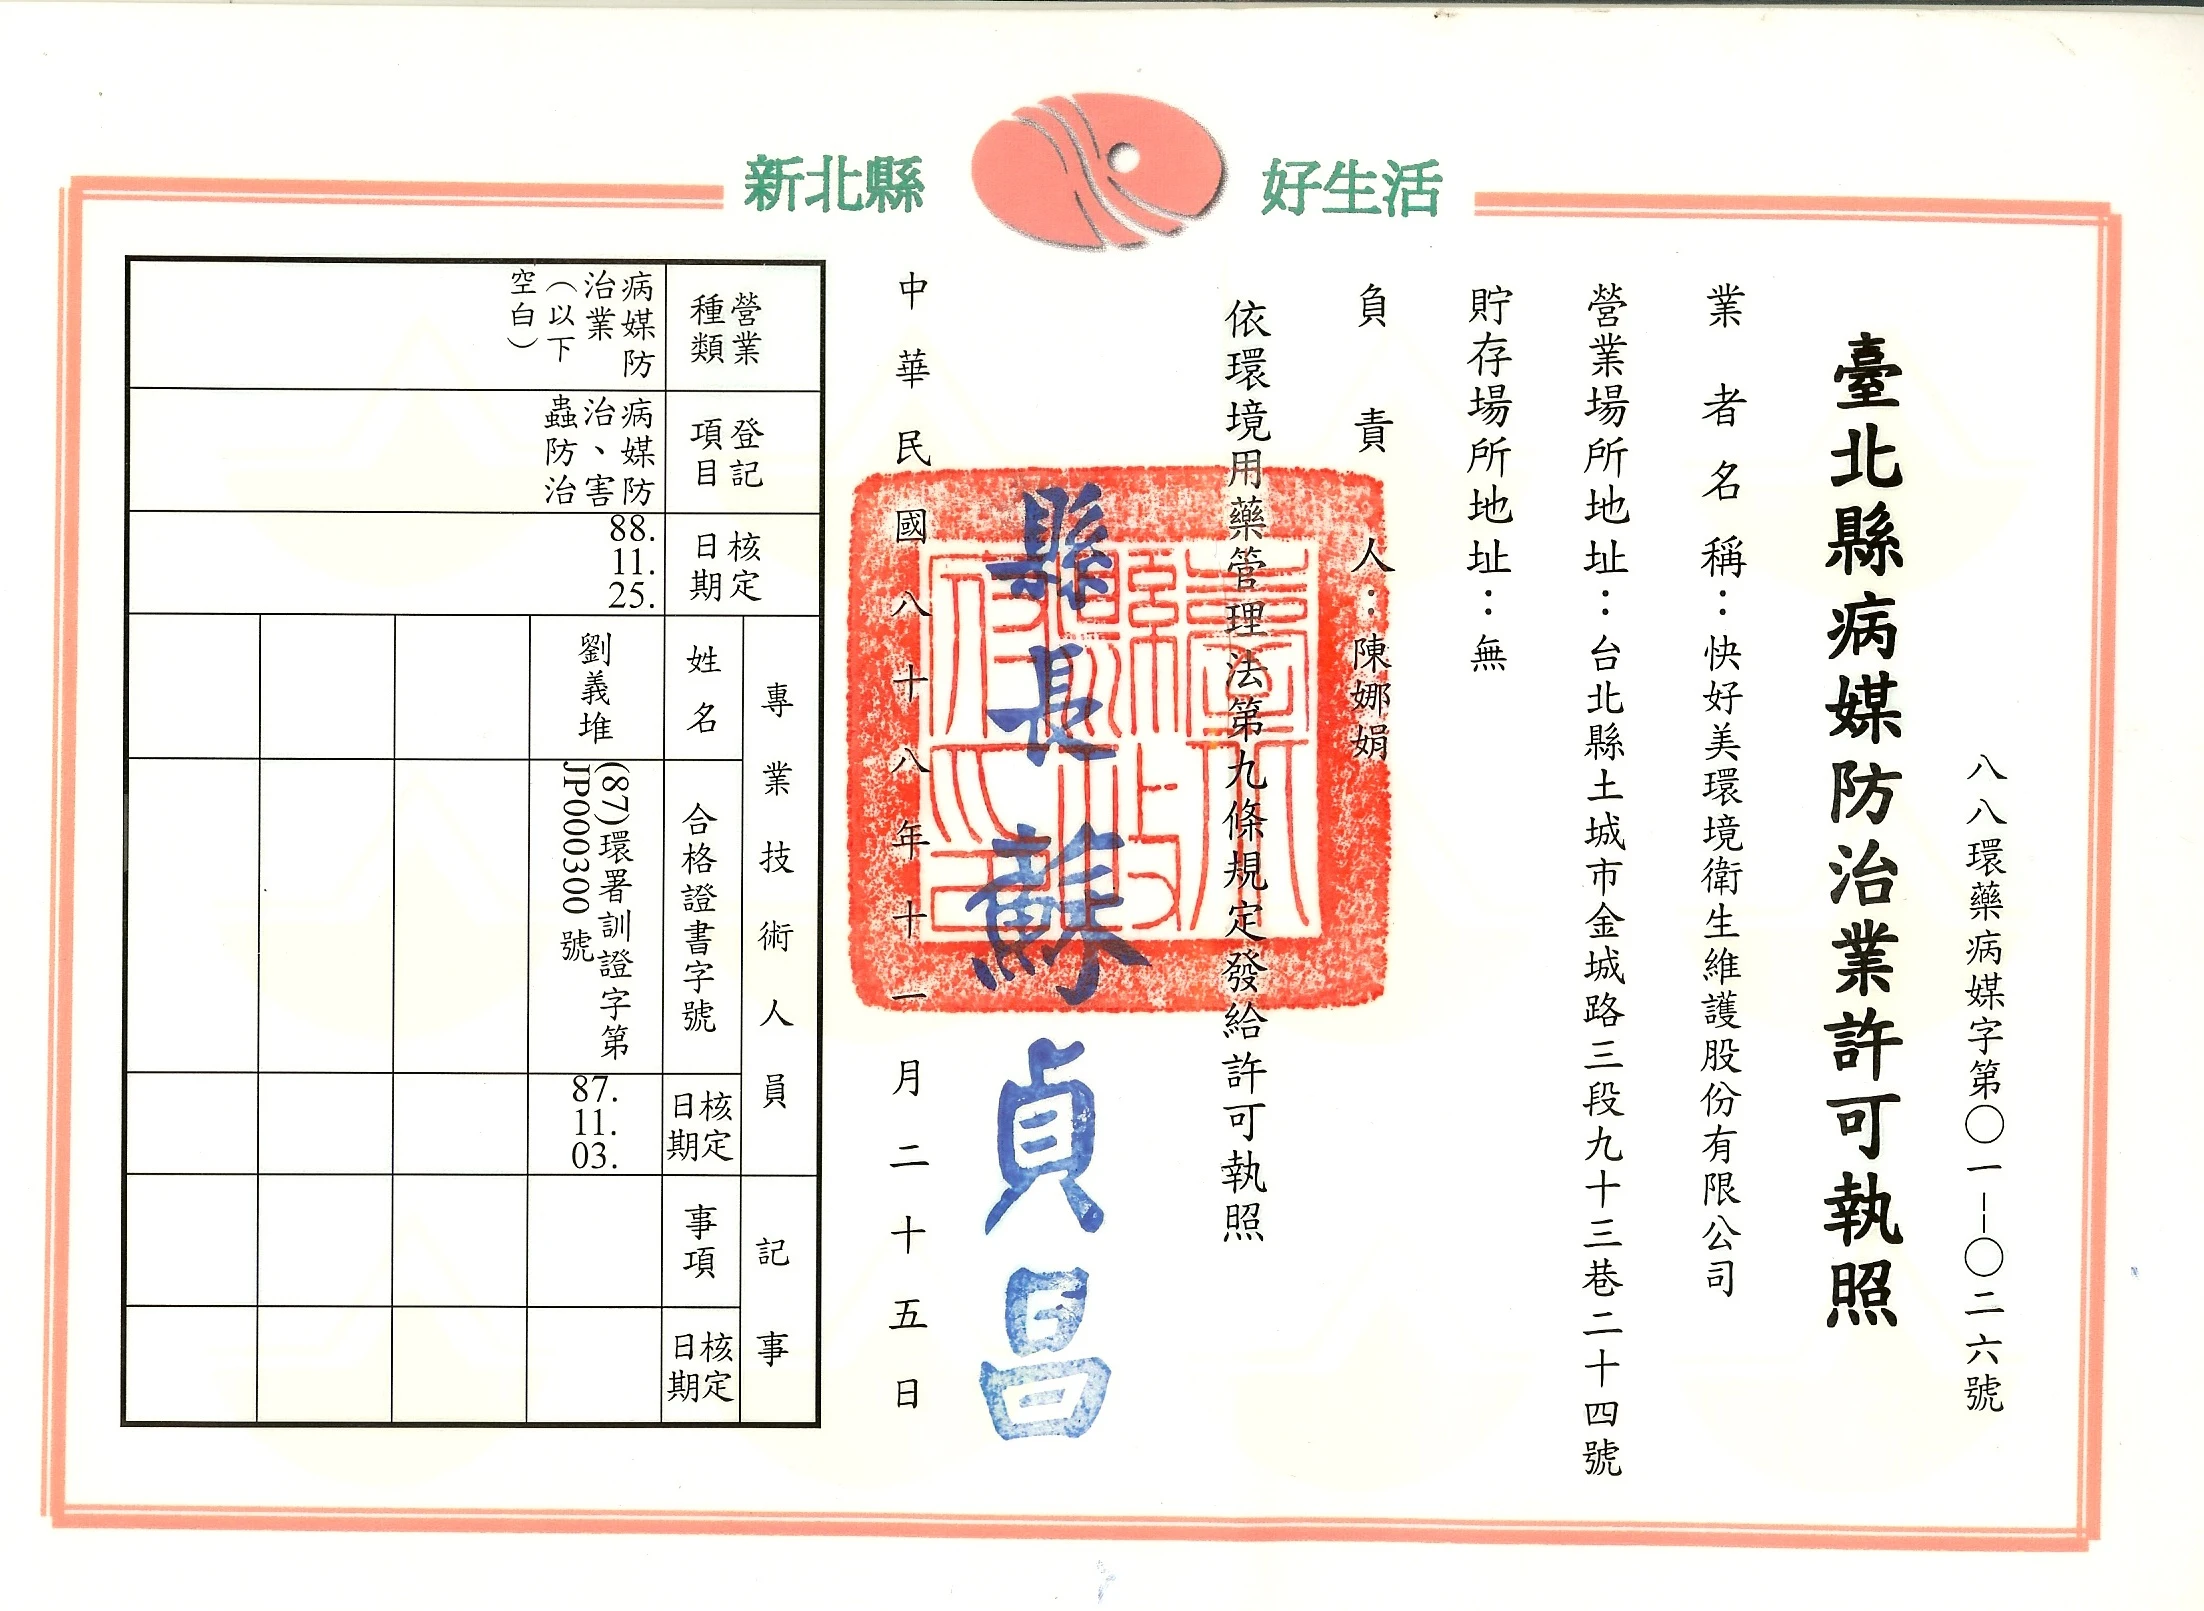 新北縣 好生活
八八環藥病媒字第〇一－〇二六號
臺北縣病媒防治業許可執照
業者名稱：快好美環境衛生維護股份有限公司
營業場所地址：台北縣土城市金城路三段九十三巷二十四號
貯存場所地址：無
負責人：陳娜娟
依環境用藥管理法第九條規定發給許可執照
臺北縣政府之印
縣長蘇貞昌
中華民國八十八年十一月二十五日
營業種類
病媒防治業
（以下空白）
登記項目
病媒防治、害蟲防治
核定日期
88.11.25.
專業技術人員
姓名
劉義堆
合格證書字號
(87)環署訓證字第
JP000300號
核定日期
87.11.03.
記事
事項
核定日期